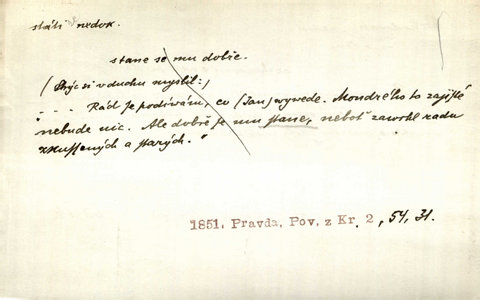 státi nedok.
stane se mu dobře.
(Strýc si v duchu myslil:)
„... Rád se podívám, co (Jan) wywede. Moudrého to zajisté
nebude nic. Ale dobře je mu stane, neboť zawrhl radu
zkušených a starých.“
1851. Pravda, Pov. z Kr. 2, 54, 31.